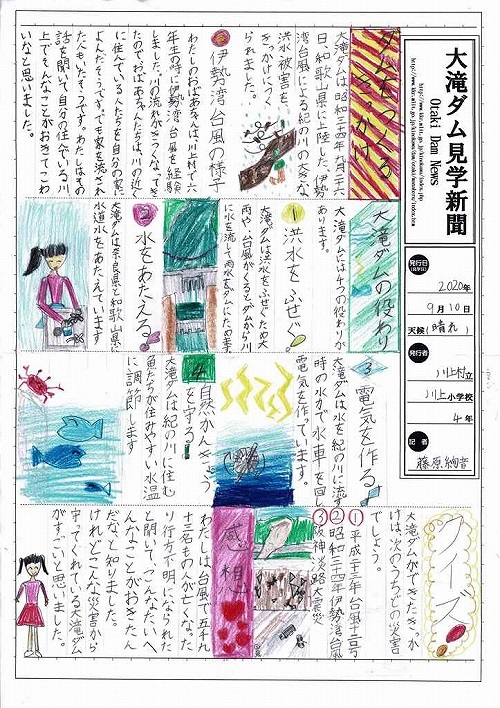 大滝ダム見学新聞
Otaki Dam News
発行日
(見学日)
2020年
9月10日
天候（晴れ）
発行者
川上村立
川上小学校
4年
記者
藤原絢音
ダムをつくる
きっかけ
大滝ダムは、昭和三十四年九月二十六
日、和歌山県に上陸した、伊勢
湾台風による紀の川の大きな
洪水被害を、
きっかけにつく
られました。
伊勢湾台風の様子
わたしのおばあちゃんは、川上村で六
年生の時に伊勢湾台風を経験
しました。川の流れがきゅうになってき
たのでおばあちゃんたちは、川の近く
に住んでいる人たちを自分の家に
よんだそうです。でも家を流された
た人もいたそうです。わたしはその
話を聞いて自分の住んでいる川
上でそんなことがおきてこわ
いなと思いました。
大滝ダムの役わり
大滝ダムには4つの役わりが
あります。
1 洪水をふせぐ。
大滝ダムは洪水をふせぐため大
雨や、台風がくるとダムから川
に水を流して雨水をダムにためます。
2 水をあたえる。
大滝ダムは奈良県と和歌山県に
水道水をあたえています
3 電気を作る
大滝ダムは、水を紀の川に流す
時の水力で水車を回し
電気を作っています。
4 自然かんきょう
を守る！
大滝ダムは紀の川に住む
魚たちが住みやすい水温
に調節します
クイズ
大滝ダムができたきっか
けは、次のうちどの災害
でしょう。
① 平成二十三年台風十二号
② 昭和三十四年伊勢湾台風
③ 阪神淡路大震災
感想
わたしは台風で五千九
十三名もの人が亡くなった
り行方不明になられた
と聞いて、こんなたいへ
んなことがおきたん
だなと知りました。
けれどこんな災害から
守ってくれている大滝ダム
がすごいと思いました。